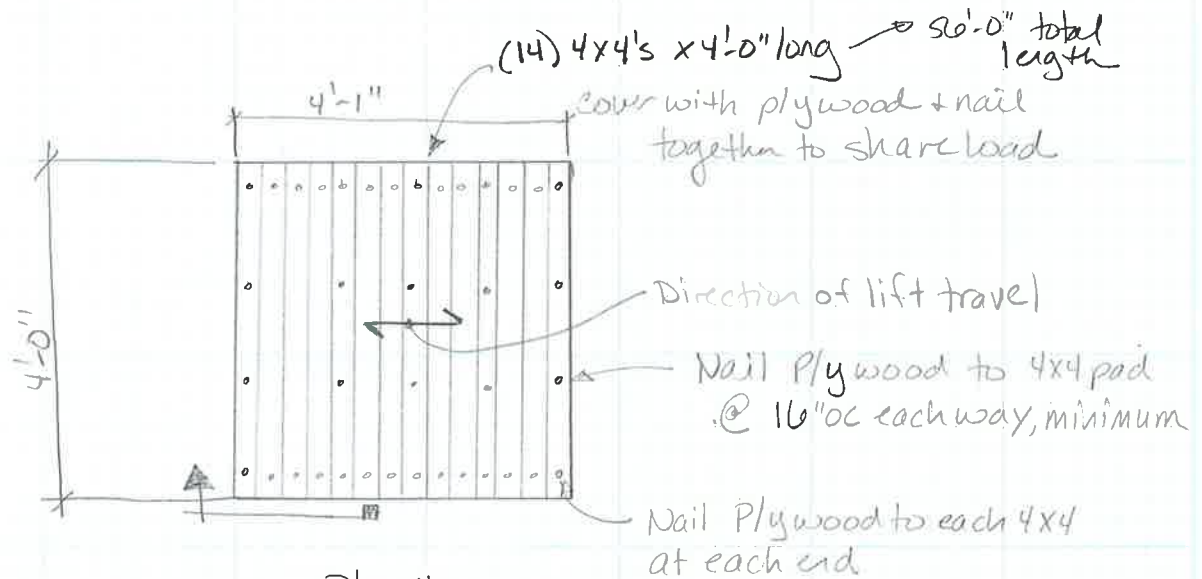 (14) 4x4's x 4'-0" long
56'-0" total
length
4'-1"
cover with plywood + nail
together to share load
4'-0"
Direction of lift travel
Nail Plywood to 4x4 pad
@ 16"oc each way, minimum
Nail Plywood to each 4x4
at each end